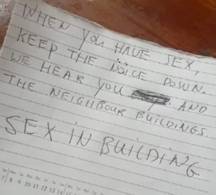 WHEN YOU HAVE SEX,
KEEP THE NOICE DOWN.
WE HEAR YOU AND
THE NEIGHBOUR BUILDINGS.
SEX IN BUILDING